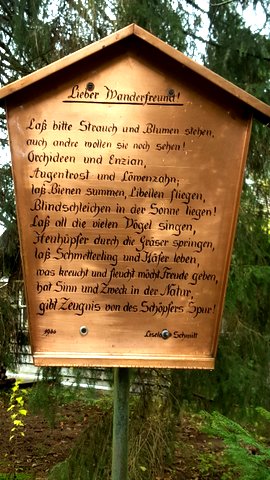 Lieber Wanderfreund!
Laß bitte Strauch und Blumen stehen,
auch andre wollen sie noch sehen!
Orchideen und Enzian,
Augentrost und Löwenzahn;
laß Bienen summen, Libellen fliegen,
Blindschleichen in der Sonne liegen!
Laß all die vielen Vögel singen,
Heuhüpfer durch die Gräser springen,
laß Schmetterling und Käfer leben,
was kreucht und fleucht möcht Freude geben,
hat Sinn und Zweck in der Natur,
gibt Zeugnis von des Schöpfers Spur!
Schmitt